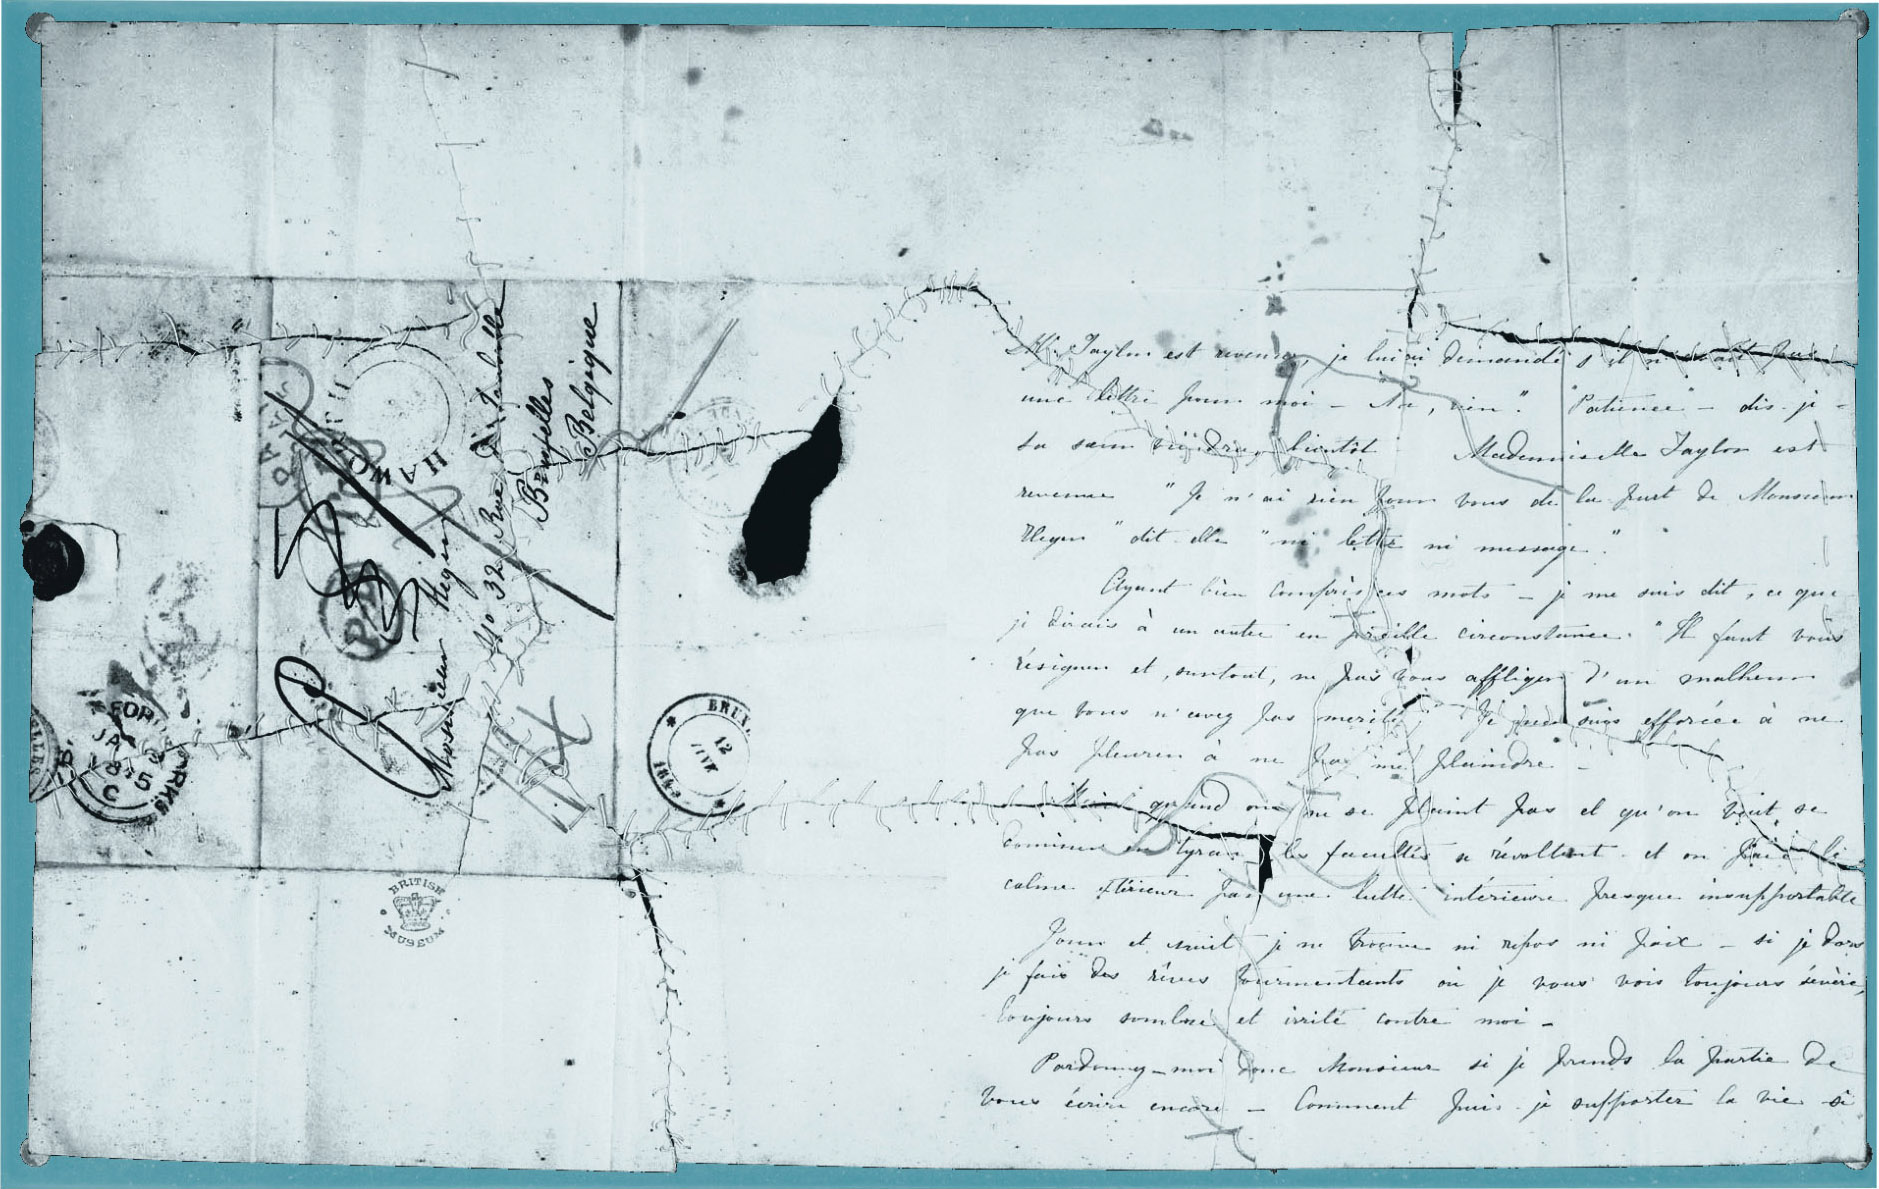 Mr Taylor est revenu, je lui ai demandé s'il n'avait pas
une lettre pour moi – "Non, rien." "Patience" – dis-je –
sa sœur viendra bientôt – Mademoiselle Taylor est
revenue "Je n'ai rien pour vous de la part de Monsieur
Heger" dit-elle "ni lettre ni message."
Ayant bien compris ces mots – je me suis dit, ce que
je dirais à un autre en pareille circonstance. "Il faut vous
résigner et, surtout, ne pas vous affliger d'un malheur
que vous n'avez pas merité". Je me suis efforcée à ne
pas pleurer à ne pas me plaindre –
Mais quand on ne se plaint pas et qu'on veut se
dominer en tyran – les facultés se révoltent – et on paie le
calme extérieur par une lutte intérieure presque insupportable
Jour et nuit je ne trouve ni repos ni paix – si je dors
je fais des rêves tourmentants où je vous vois toujours sévère,
toujours sombre et irrité contre moi –
Pardonnez-moi donc Monsieur si je prends la partie de
vous écrire encore – Comment puis-je supporter la vie si
Monsieur Heger
No 32 Rue d'Isabelle
Bruxelles
Belgique
HAWORTH
PD
BRUX
12
184
JA
1845
C
BRITISH
MUSEUM